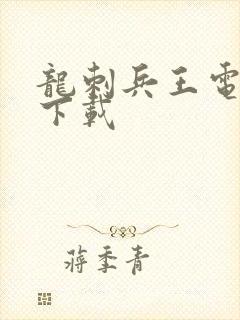 龍刺兵王電
下載
蔣季青